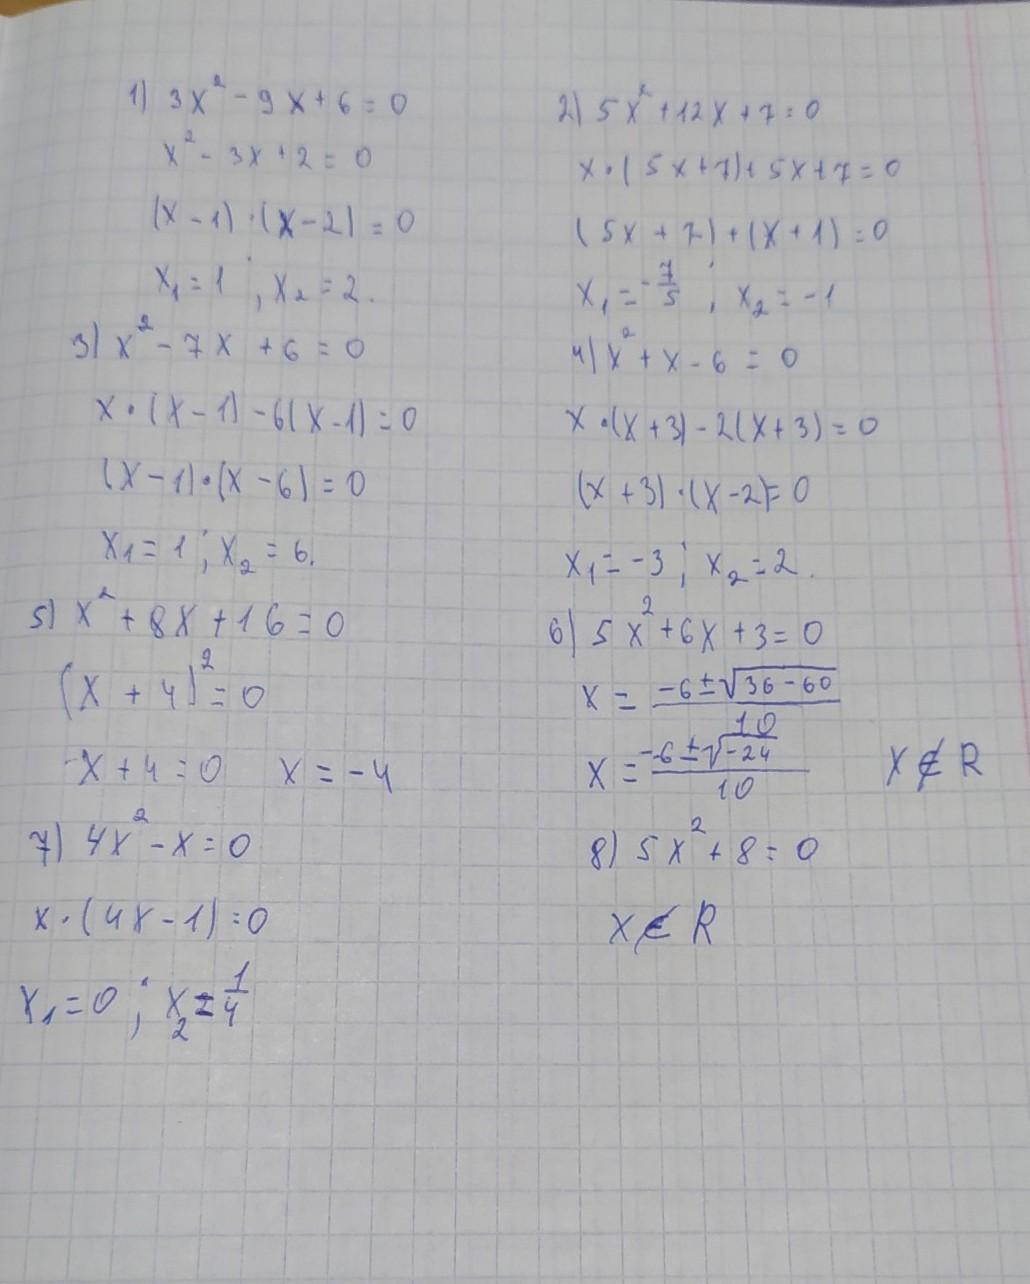 1) 3x² - 9x + 6 = 0
x² - 3x + 2 = 0
(x - 1) · (x - 2) = 0
x₁ = 1 ; x₂ = 2.
2) 5x² + 12x + 7 = 0
x · (5x + 7) + 5x + 7 = 0
(5x + 7) + (x + 1) = 0
x₁ = -7/5 ; x₂ = -1
3) x² - 7x + 6 = 0
x · (x - 1) - 6(x - 1) = 0
(x - 1) · (x - 6) = 0
x₁ = 1 ; x₂ = 6.
4) x² + x - 6 = 0
x · (x + 3) - 2(x + 3) = 0
(x + 3) · (x - 2) = 0
x₁ = -3 ; x₂ = 2.
5) x² + 8x + 16 = 0
(x + 4)² = 0
x + 4 = 0 x = -4
6) 5x² + 6x + 3 = 0
x = (-6 ± √(36 - 60))/10
x = (-6 ± √(-24))/10 x ∉ R
7) 4x² - x = 0
x · (4x - 1) = 0
x₁ = 0 ; x₂ = 1/4
8) 5x² + 8 = 0
x ∉ R